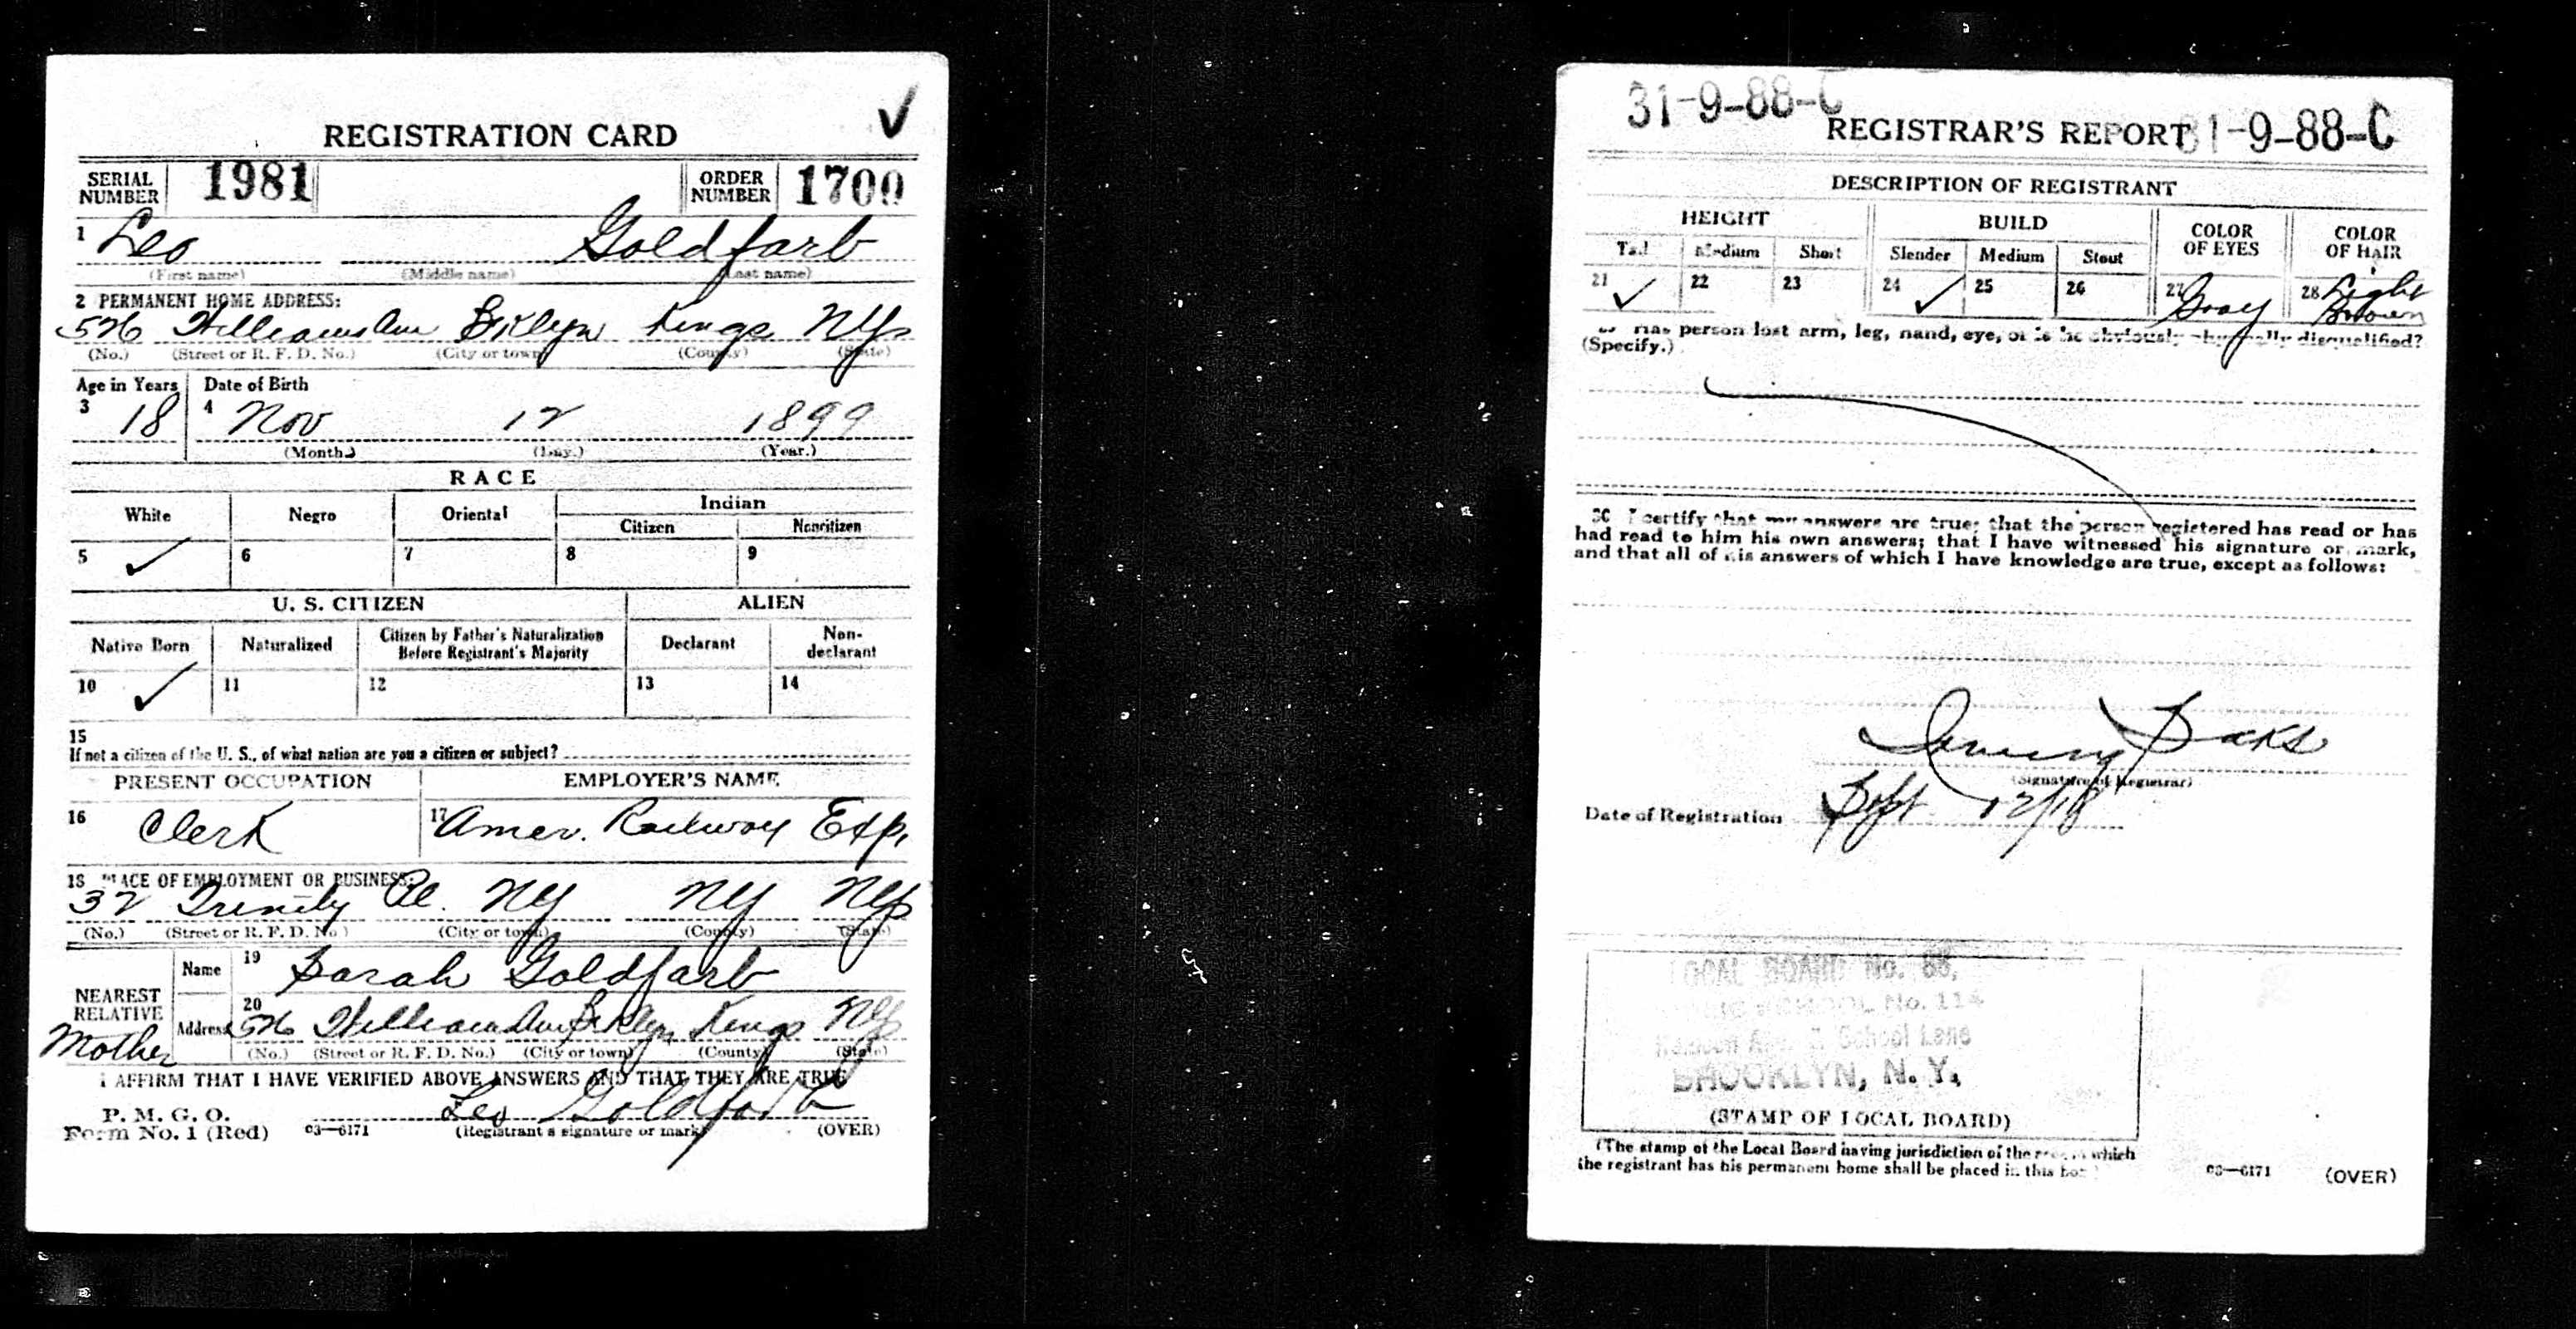 ✓
REGISTRATION CARD
SERIAL NUMBER 1981 ORDER NUMBER 1700
1 Leo Goldfarb
(First name) (Middle name) (Last name)
2 PERMANENT HOME ADDRESS:
526 Williams Ave Bklyn Kings NY
(No.) (Street or R. F. D. No.) (City or town) (County) (State)
Age in Years Date of Birth
3 18 4 Nov 12 1899
(Month.) (Day.) (Year.)
RACE
White Negro Oriental Indian
Citizen Noncitizen
5 ✓ 6 7 8 9
U. S. CITIZEN ALIEN
Native Born Naturalized Citizen by Father's Naturalization Before Registrant's Majority Declarant Non-declarant
10 ✓ 11 12 13 14
15
If not a citizen of the U. S., of what nation are you a citizen or subject?
PRESENT OCCUPATION EMPLOYER'S NAME
16 Clerk 17 Amer. Railway Exp.
18 PLACE OF EMPLOYMENT OR BUSINESS:
32 Trinity Pl. NY NY NY
(No.) (Street or R. F. D. No.) (City or town) (County) (State)
NEAREST RELATIVE Name 19 Sarah Goldfarb
Mother Address 20 526 Williams Ave Bklyn Kings NY
(No.) (Street or R. F. D. No.) (City or town) (County) (State)
I AFFIRM THAT I HAVE VERIFIED ABOVE ANSWERS AND THAT THEY ARE TRUE
P. M. G. O.
Form No. 1 (Red) 03—6171 Leo Goldfarb
(Registrant's signature or mark) (OVER)
31-9-88-C
REGISTRAR'S REPORT 31-9-88-C
DESCRIPTION OF REGISTRANT
HEIGHT BUILD COLOR OF EYES COLOR OF HAIR
Tall Medium Short Slender Medium Stout
21 ✓ 22 23 24 ✓ 25 26 27 Gray 28 Light Brown
Has person lost arm, leg, hand, eye, or is he obviously physically disqualified?
(Specify.)
30 I certify that my answers are true; that the person registered has read or has
had read to him his own answers; that I have witnessed his signature or mark,
and that all of his answers of which I have knowledge are true, except as follows:
Irving Saks
(Signature of Registrar)
Date of Registration Sept 12/18
LOCAL BOARD No. 88,
SCHOOL No. 114
School Lane
BROOKLYN, N. Y.
(STAMP OF LOCAL BOARD)
(The stamp of the Local Board having jurisdiction of the area in which
the registrant has his permanent home shall be placed in this box.)
03—6171 (OVER)